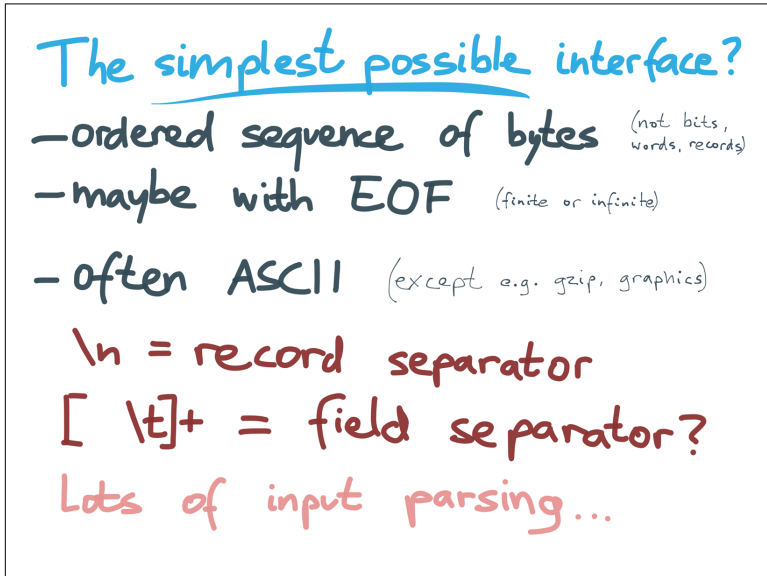 The simplest possible interface?
– ordered sequence of bytes (not bits, words, records)
– maybe with EOF (finite or infinite)
– often ASCII (except e.g. gzip, graphics)
\n = record separator
[ \t]+ = field separator?
Lots of input parsing...